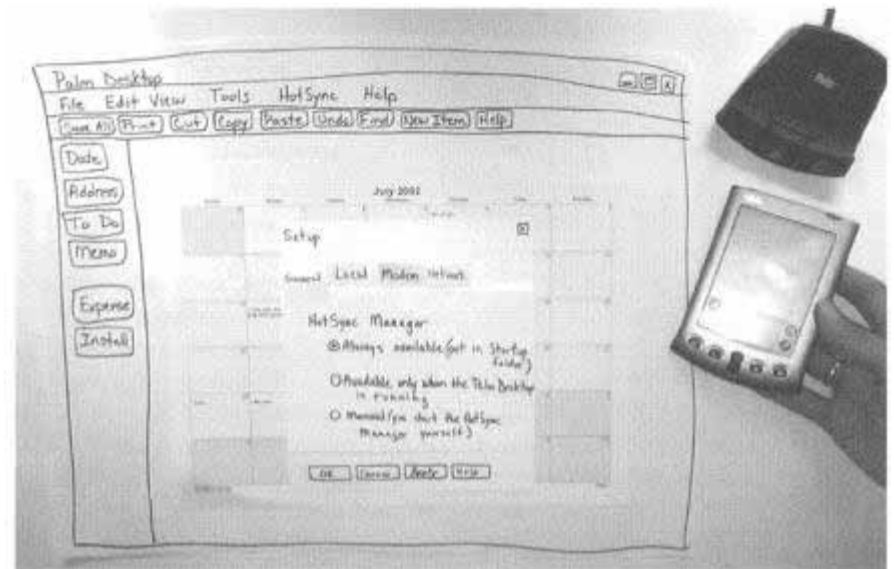 Palm Desktop
File Edit View Tools HotSync Help
Save All Print Cut Copy Paste Undo Find New Item Help
Date
Address
To Do
Memo
Expense
Install
July 2002
Setup
General Local Modem Network
HotSync Manager
Always available (put in Startup
folder)
Available only when the Palm Desktop
is running
Manual (you start the HotSync
Manager yourself)
OK Cancel Apply Help